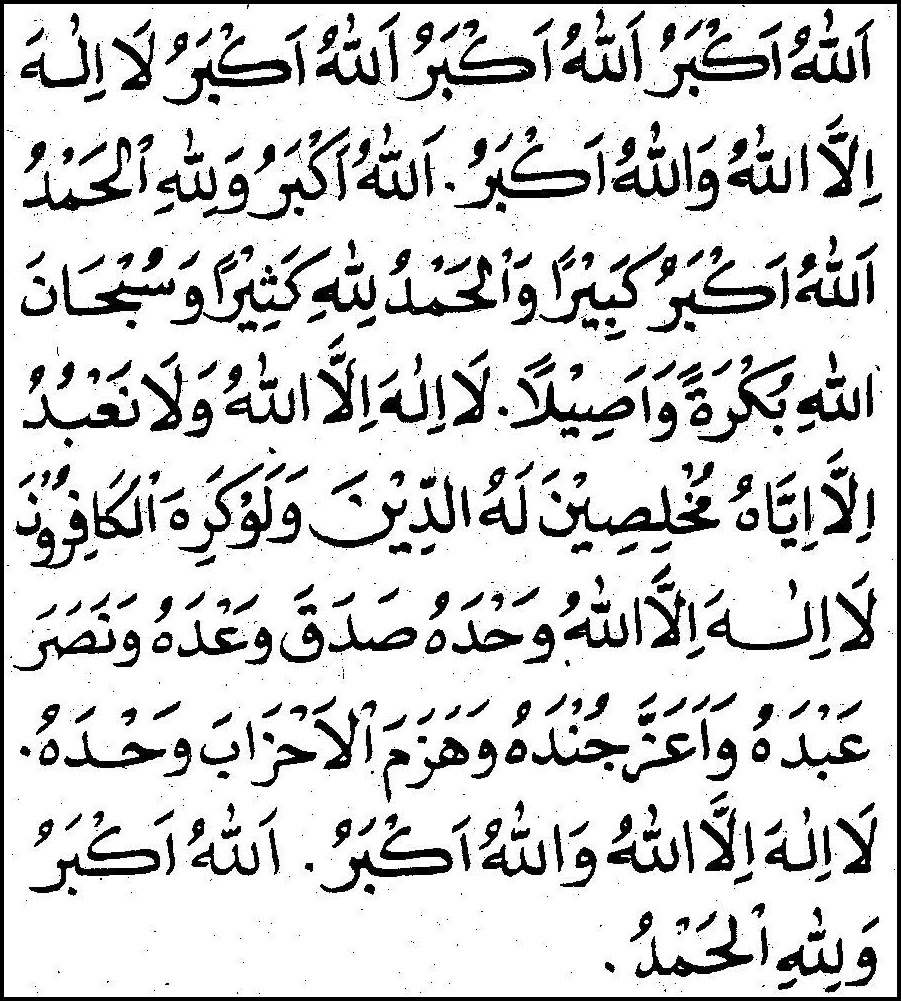 اَللّٰهُ اَكْبَرُ اَللّٰهُ اَكْبَرُ اَللّٰهُ اَكْبَرُ لَا اِلٰهَ
اِلَّا اللّٰهُ وَاللّٰهُ اَكْبَرُ. اَللّٰهُ اَكْبَرُ وَلِلّٰهِ اْلحَمْدُ
اَللّٰهُ اَكْبَرُ كَبِيْرًا وَاْلحَمْدُ لِلّٰهِ كَثِيْرًا وَسُبْحَانَ
اللّٰهِ بُكْرَةً وَاَصِيْلًا. لَا اِلٰهَ اِلَّا اللّٰهُ وَلَا نَعْبُدُ
اِلَّا اِيَّاهُ مُخْلِصِيْنَ لَهُ الدِّيْنَ وَلَوْكَرِهَ اْلكَافِرُوْنَ
لَا اِلٰهَ اِلَّا اللّٰهُ وَحْدَهُ صَدَقَ وَعْدَهُ وَنَصَرَ
عَبْدَهُ وَاَعَزَّ جُنْدَهُ وَهَزَمَ اْلاَحْزَابَ وَحْدَهُ.
لَا اِلٰهَ اِلَّا اللّٰهُ وَاللّٰهُ اَكْبَرُ. اَللّٰهُ اَكْبَرُ
وَلِلّٰهِ اْلحَمْدُ.